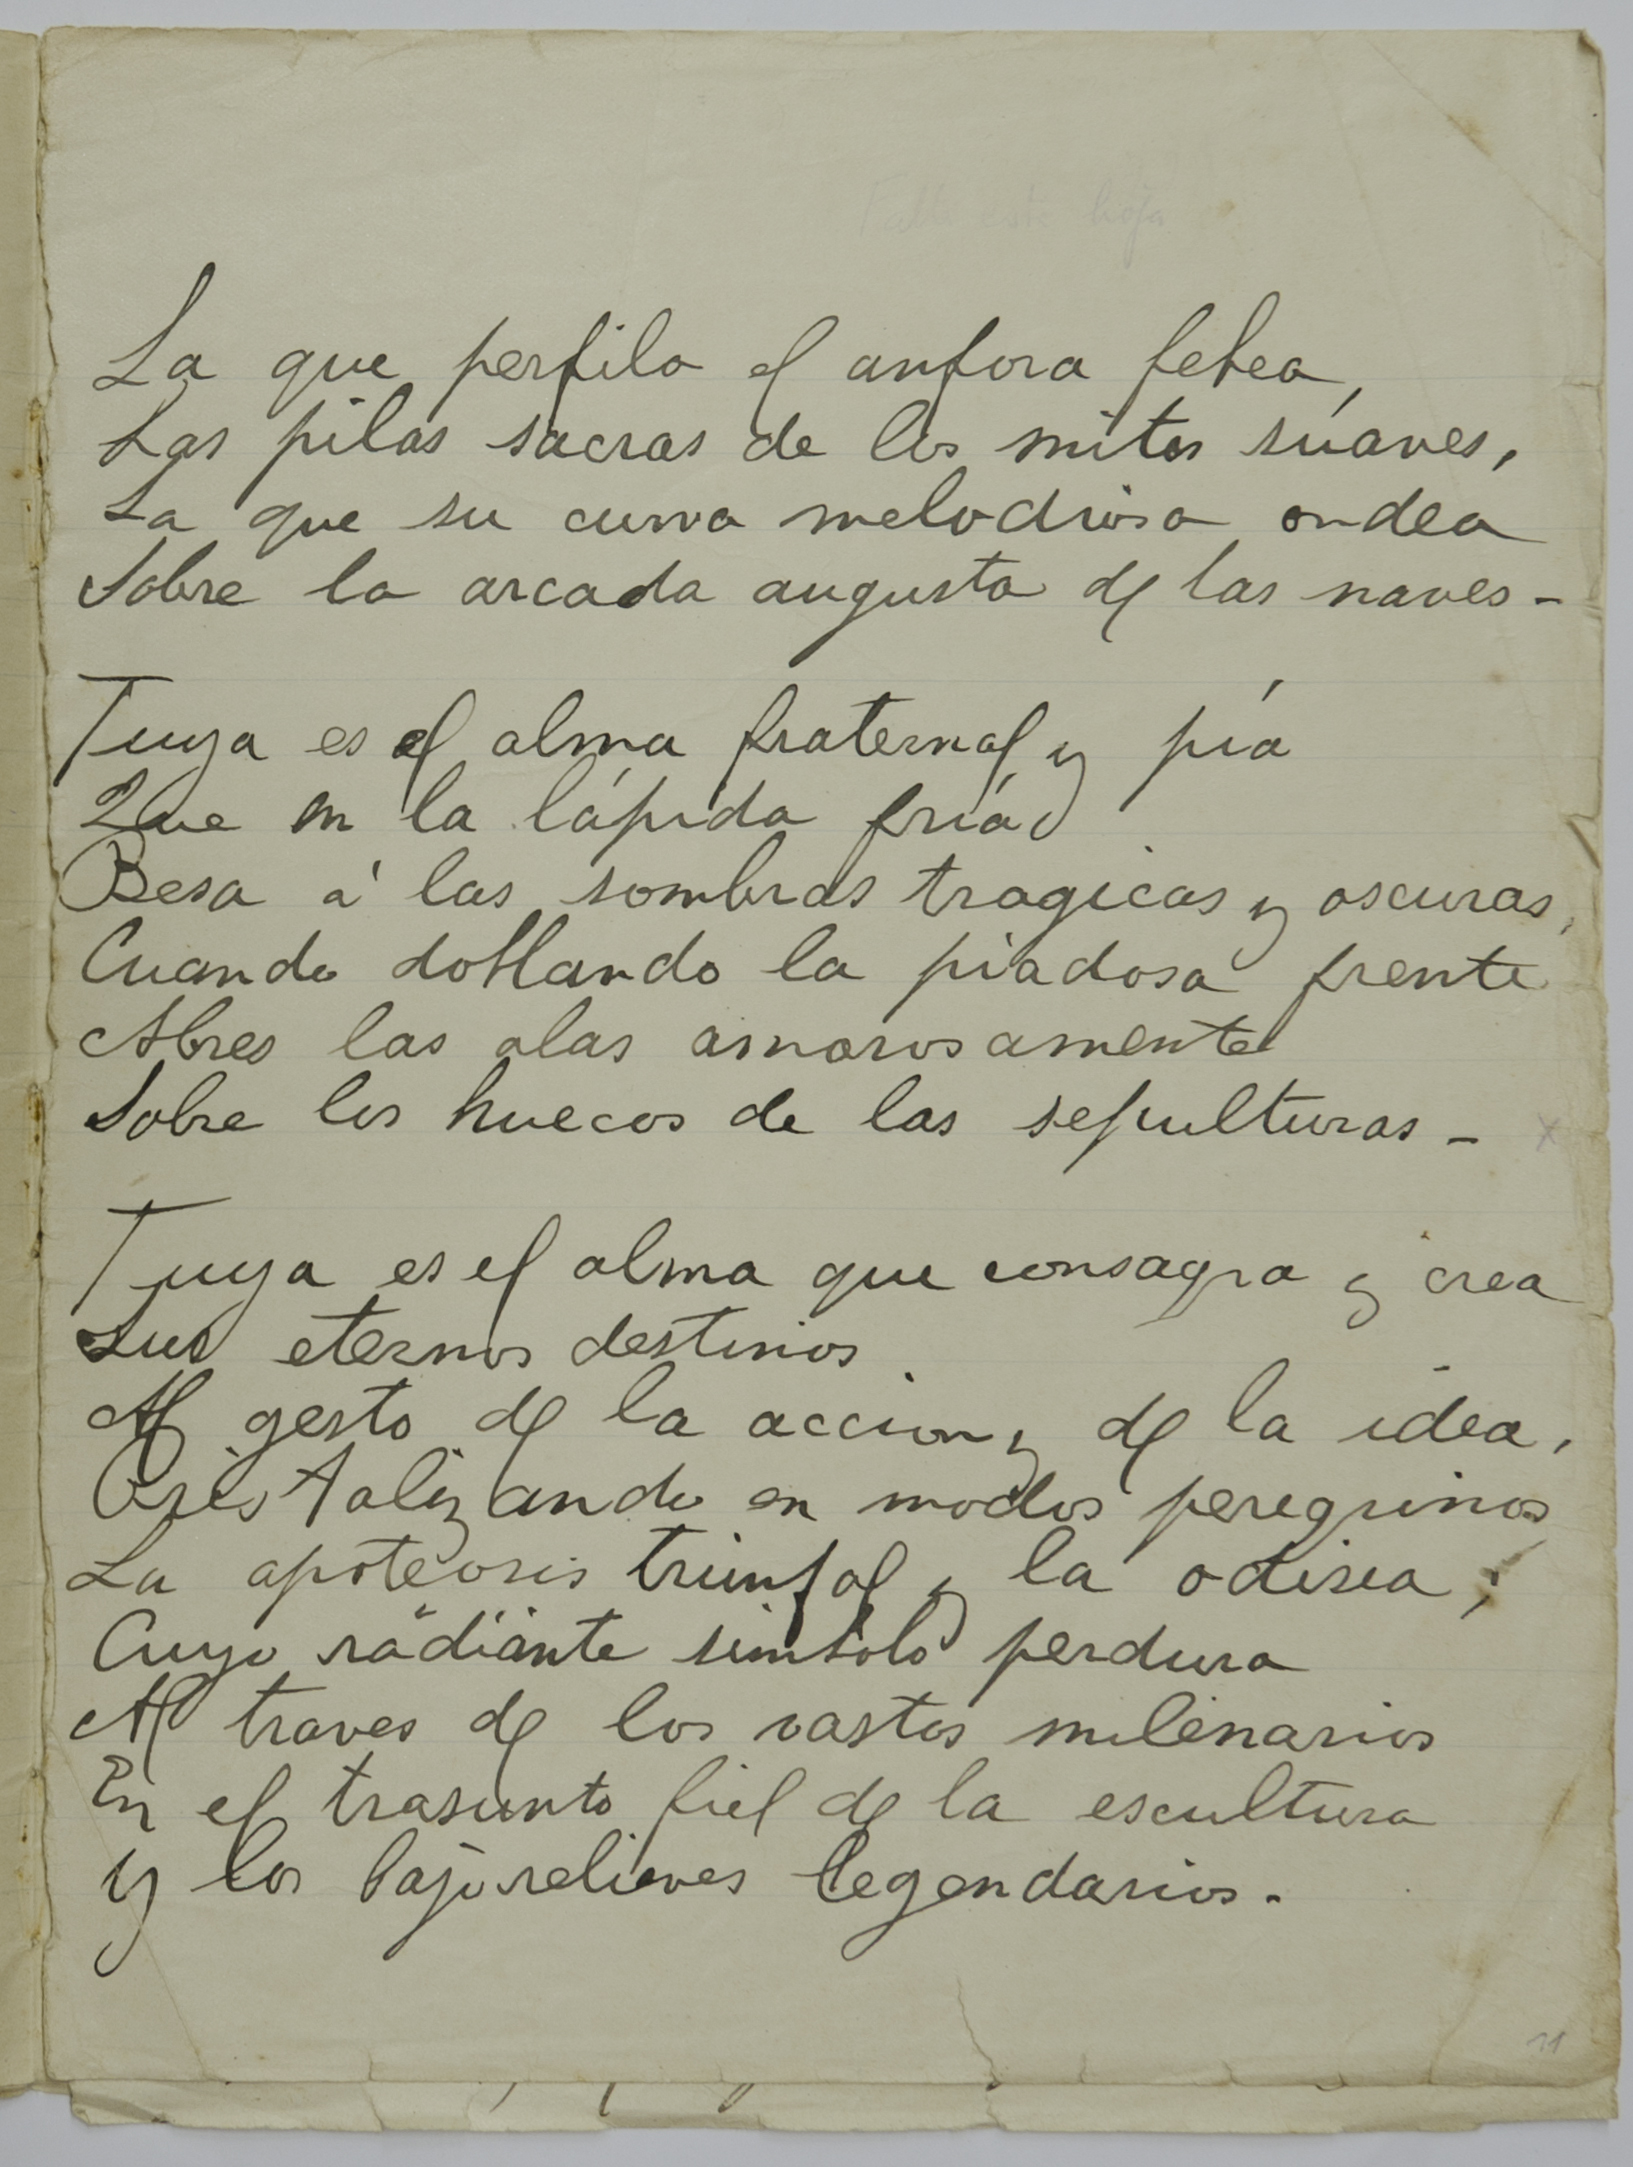 Falta esta hoja
La que perfila el anfora febea,
Las pilas sacras de los mitos súaves,
La que su curva melodiosa ondea
Sobre la arcada augusta de las naves -
Tuya es el alma fraternal y pía
Que en la lápida fría
Besa á las sombras tragicas y oscuras,
Cuando doblando la piadosa frente
Abres las alas amorosamente
Sobre los huecos de las sepulturas - x
Tuya es el alma que consagra y crea
Sus eternos destinos
Al gesto de la accion y de la idea,
Cristalizando en modos peregrinos
La apoteosis triunfal y la odisea;
Cuyo rádiánte simbolo perdura
Al traves de los vastos milenarios
En el trasunto fiel de la escultura
y los bajorelieves legendarios.
11